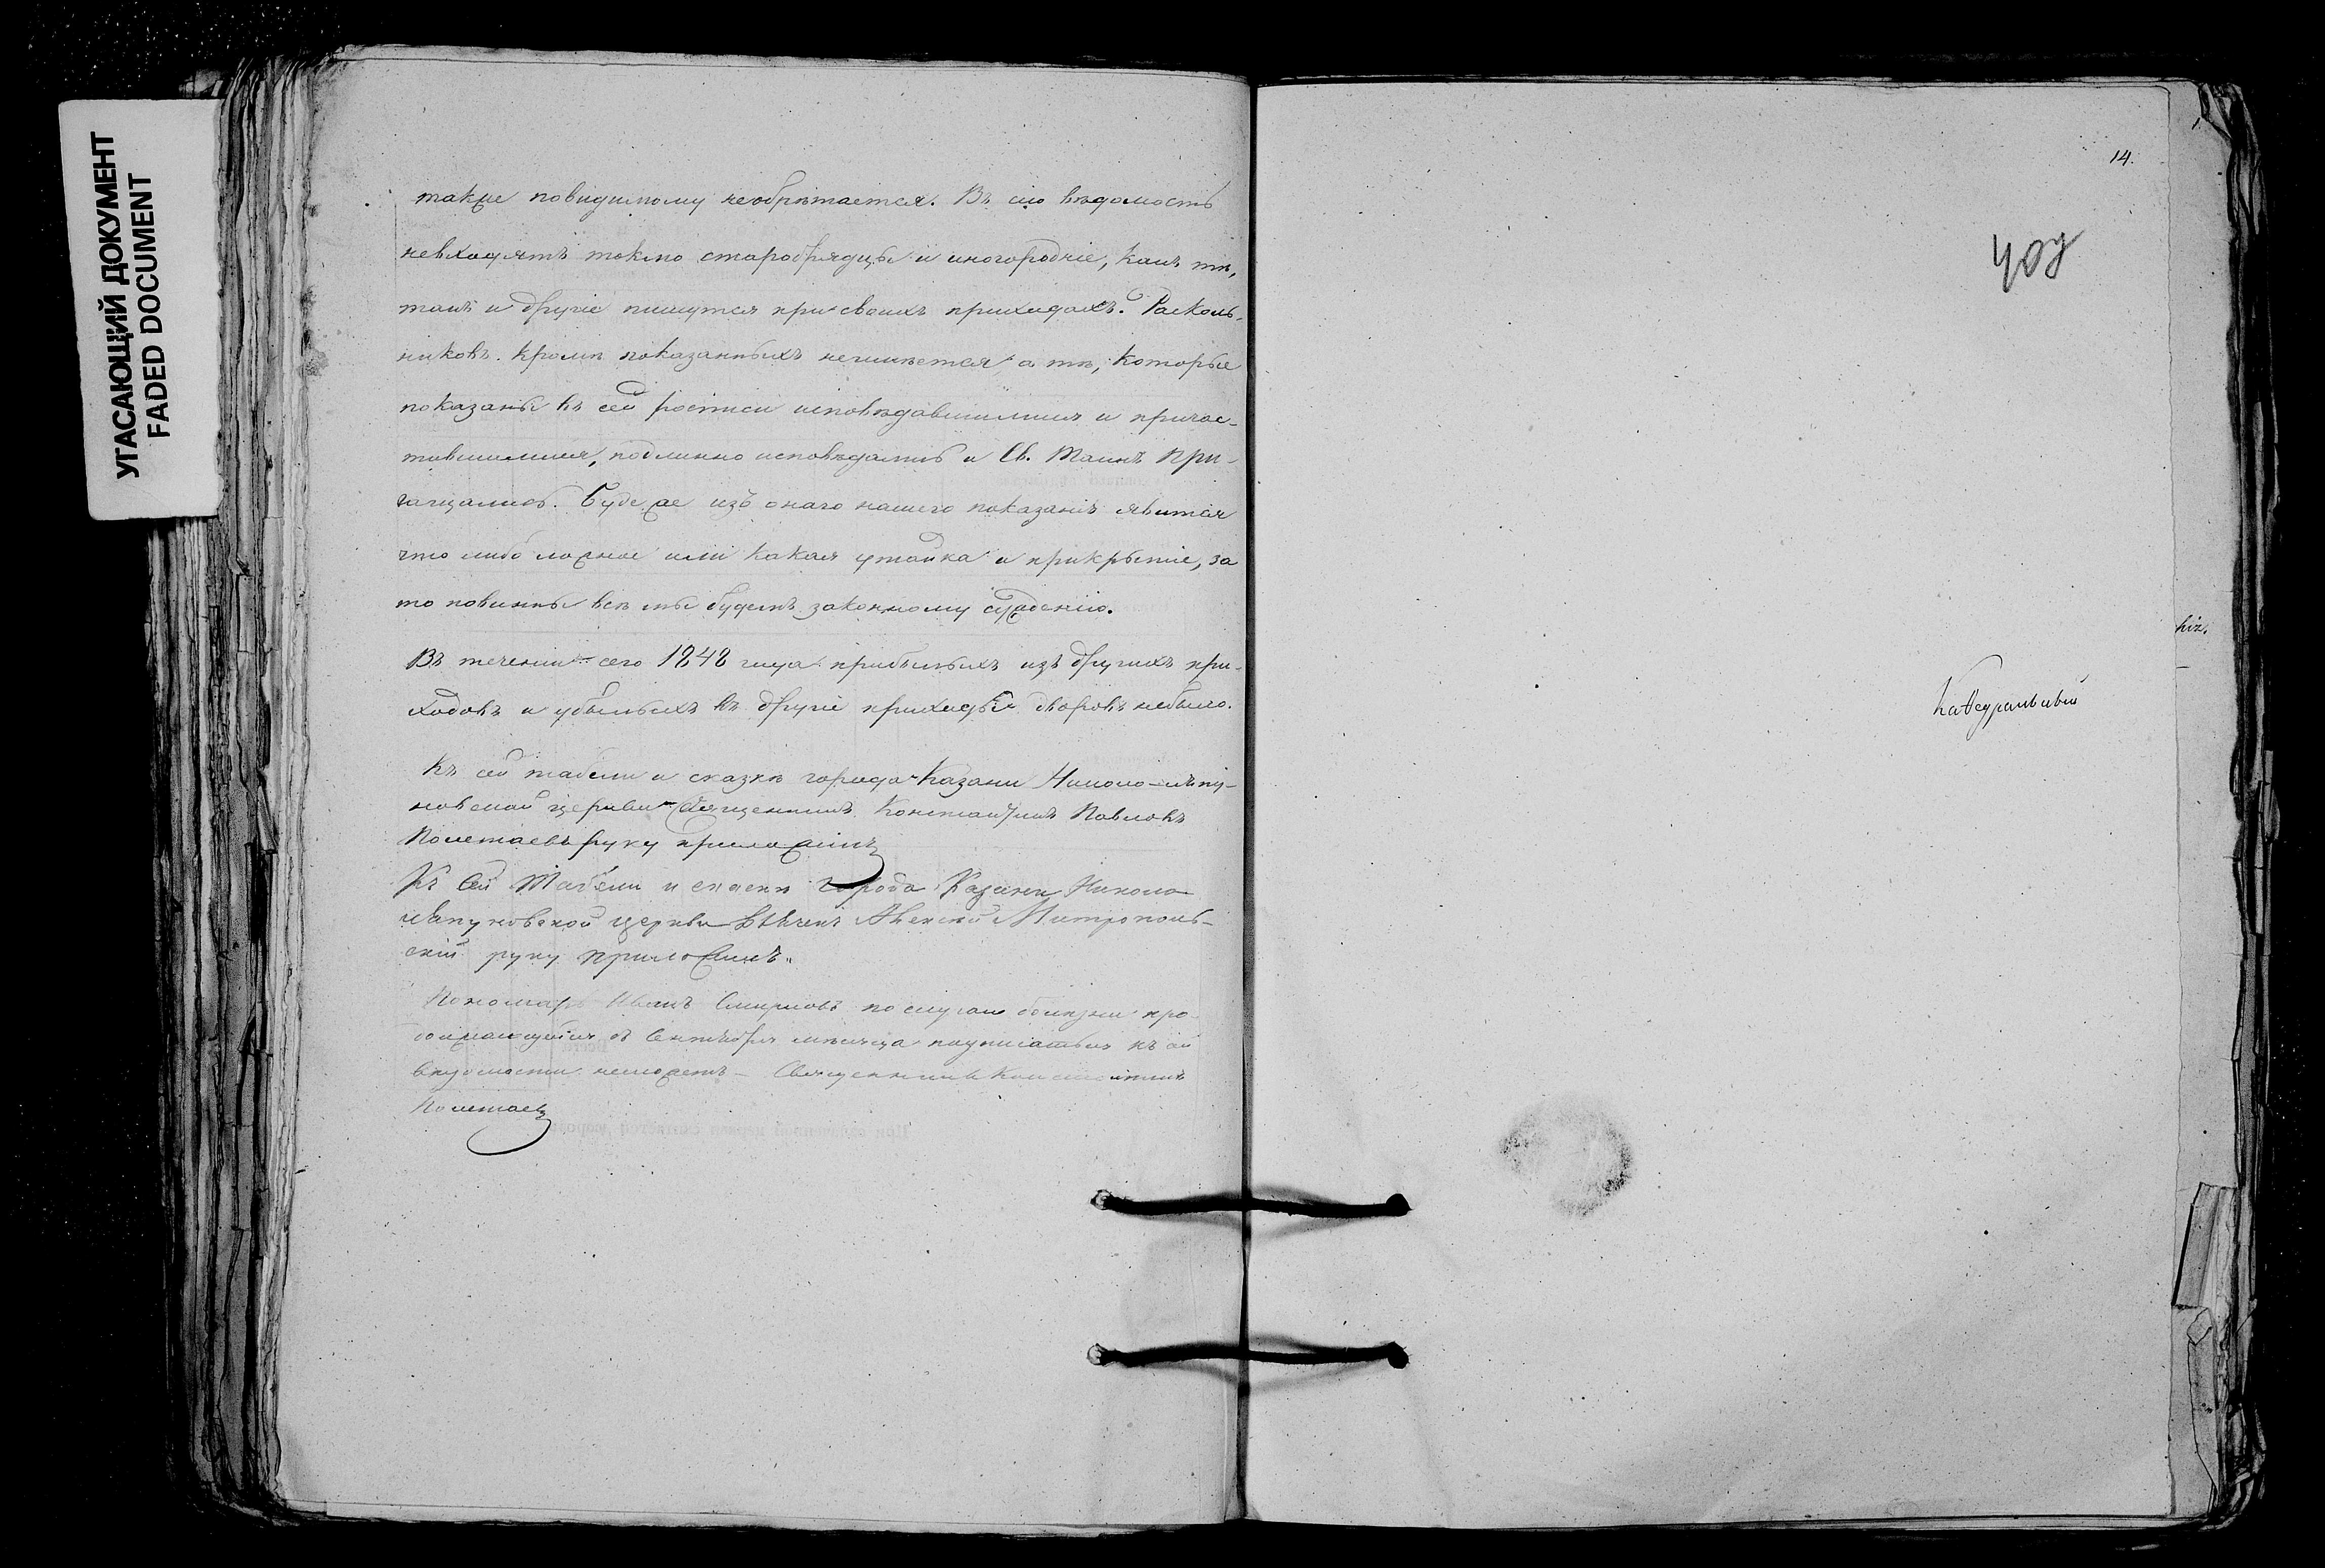 УГАСАЮЩИЙ ДОКУМЕНТ
FADED DOCUMENT
также повидимому необрѣтается. Въ сію вѣдомость
невходятъ токмо старобрядцы и иногородніе, какъ тѣ,
такъ и другіе пишутся при своихъ приходахъ. Расколь-
никовъ кромѣ показанныхъ неимѣется, а тѣ, которые
показаны въ сей росписи исповѣдавшимися и причас-
тившимися, подлинно исповѣдались и Св. Таинъ при-
чащались. Буде же изъ онаго нашего показанія явится
что либо ложное или какая утайка и прикрытіе, за
то повинны всѣ мы будемъ законному сужденію.
Въ теченіи сего 1848 года прибылыхъ изъ другихъ при-
ходовъ и убылыхъ въ другіе приходы дворовъ небыло.
Къ сей табели и сказкѣ города Казани Николо-ляпу-
новской церкви Священникъ Константинъ Павловъ
Полетаевъ руку приложилъ
Къ сей Табели и сказкѣ города Казани Николо
ляпуновской церкви Алексей Митрополь-
скій руку приложилъ.
Пономарь Иванъ Смирновъ по случаю болезни про-
должающейся съ Сентября мѣсяца подписаться къ сей
вѣдомости неможетъ – Священникъ Константинъ
Полетаевъ
14.
409
Каѳедральный